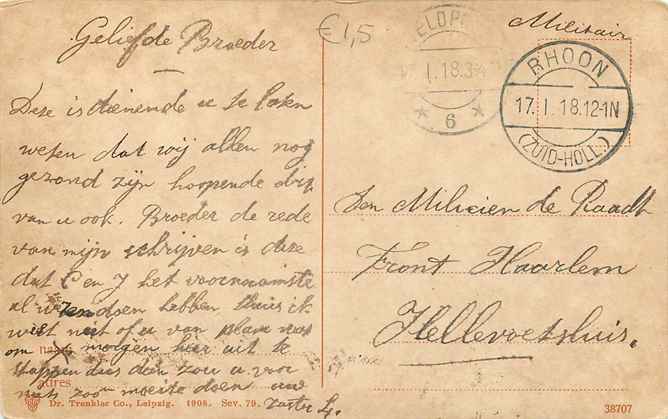 Geliefde Broeder
Deze is dienende u te laten
weten dat wij allen nog
gezond zijn hoopende dit
van u ook. Broeder de rede
van mijn schrijven is deze
dat C en J het voornaamste
al doen hebben thuis ik
wist niet of u van plan was
om morgen hier uit te
stappen dus dan zou u voor
niets zoo'n moeite doen uw
zuster
adres
Dr. Trenkler Co., Leipzig. 1908. Sev. 79.
€1,5
Militair
VELDPOST
I.18.3
6
RHOON
17.I.18.12-1N
(ZUID-HOLL.)
Den Milicien de Raadt
Front Haarlem
Hellevoetsluis.
38707